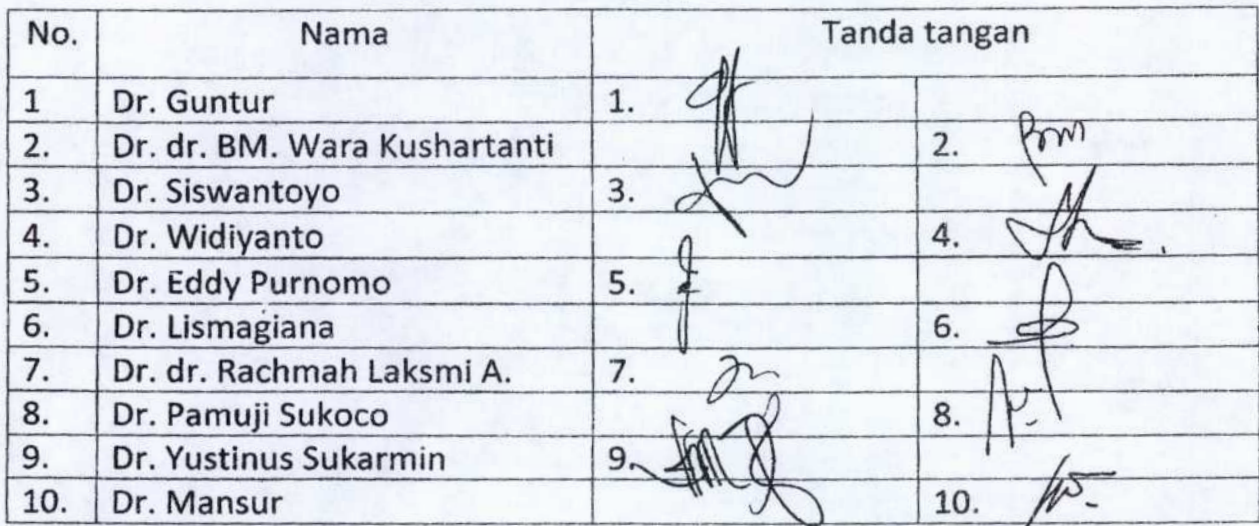 No. Nama Tanda tangan
1 Dr. Guntur 1.
2. Dr. dr. BM. Wara Kushartanti 2.
3. Dr. Siswantoyo 3.
4. Dr. Widiyanto 4.
5. Dr. Eddy Purnomo 5.
6. Dr. Lismagiana 6.
7. Dr. dr. Rachmah Laksmi A. 7.
8. Dr. Pamuji Sukoco 8.
9. Dr. Yustinus Sukarmin 9.
10. Dr. Mansur 10.